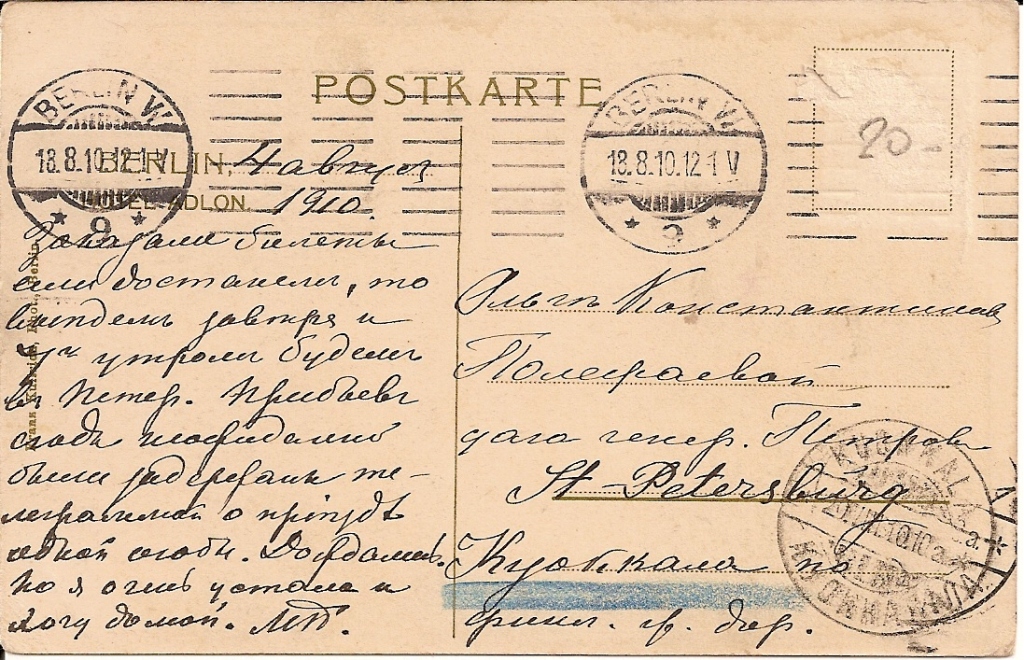 POSTKARTE
BERLIN W.
18.8.10.12-1 V
* 9 *
BERLIN W.
18.8.10.12-1 V
* c *
20-
BERLIN, 4 август
HOTEL ADLON. 1910.
Заказали билеты
если достанем, то
выедем завтра и
утром будем
въ Петер. Прибывъ
сюда неожиданно
были задержаны те-
леграммой о пріѣздѣ
одной особы.
Но я очень устала и
хочу домой. МП.
Ольгѣ Константиновнѣ
Полежаевой
дача генер. Петрова
St-Petersburg
Куоккала по
финл. ж. дор.
KUOKKALA
20.VIII.10.10 a.
КУОККАЛА